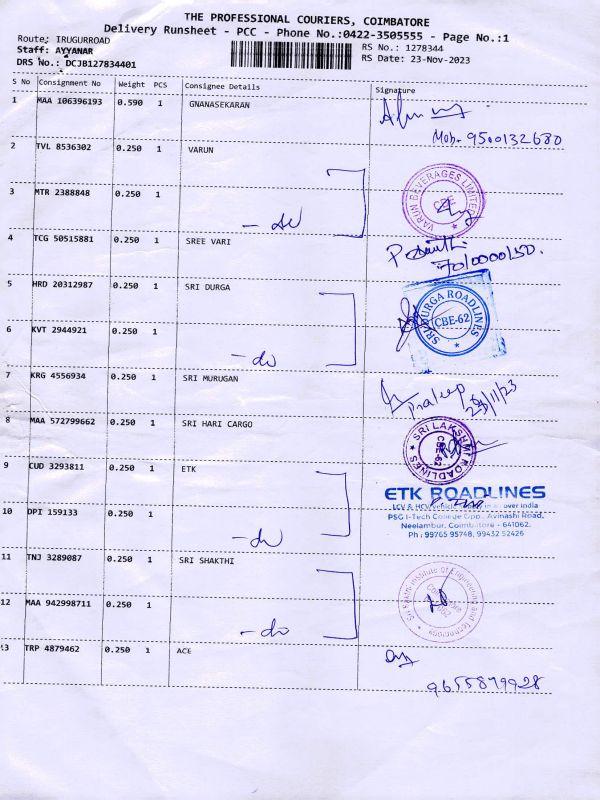 THE PROFESSIONAL COURIERS, COIMBATORE
Delivery Runsheet - PCC - Phone No.:0422-3505555 - Page No.:1
Route: IRUGURROAD
RS No.: 1278344
Staff: AYYANAR
RS Date: 23-Nov-2023
DRS No.: DCJB127834401
S No Consignment No Weight PCS Consignee Details Signature
1 MAA 106396193 0.590 1 GNANASEKARAN
Mob- 9500132680
2 TVL 8536302 0.250 1 VARUN
VARUN BEVERAGES LIMITED
CBE
3 MTR 2388848 0.250 1
- do
4 TCG 50515881 0.250 1 SREE VARI
7010000150.
5 HRD 20312987 0.250 1 SRI DURGA
SRI DURGA ROADLINES
CBE-62
6 KVT 2944921 0.250 1
- do
7 KRG 4556934 0.250 1 SRI MURUGAN
Pradeep
23/11/23
8 MAA 572799662 0.250 1 SRI HARI CARGO
SRI LAKSHMI ROADLINES
CBE-62
9 CUD 3293811 0.250 1 ETK
ETK ROADLINES
LCV & HCV over India
PSG I-Tech College Opp., Avinashi Road,
Neelambur, Coimbatore - 641062.
Ph : 99765 95748, 99432 52426
10 DPI 159133 0.250 1
- do
11 TNJ 3289087 0.250 1 SRI SHAKTHI
Sri Shakthi Institute of Engineering and Technology
12 MAA 942998711 0.250 1
- do
13 TRP 4879462 0.250 1 ACE
9655879928